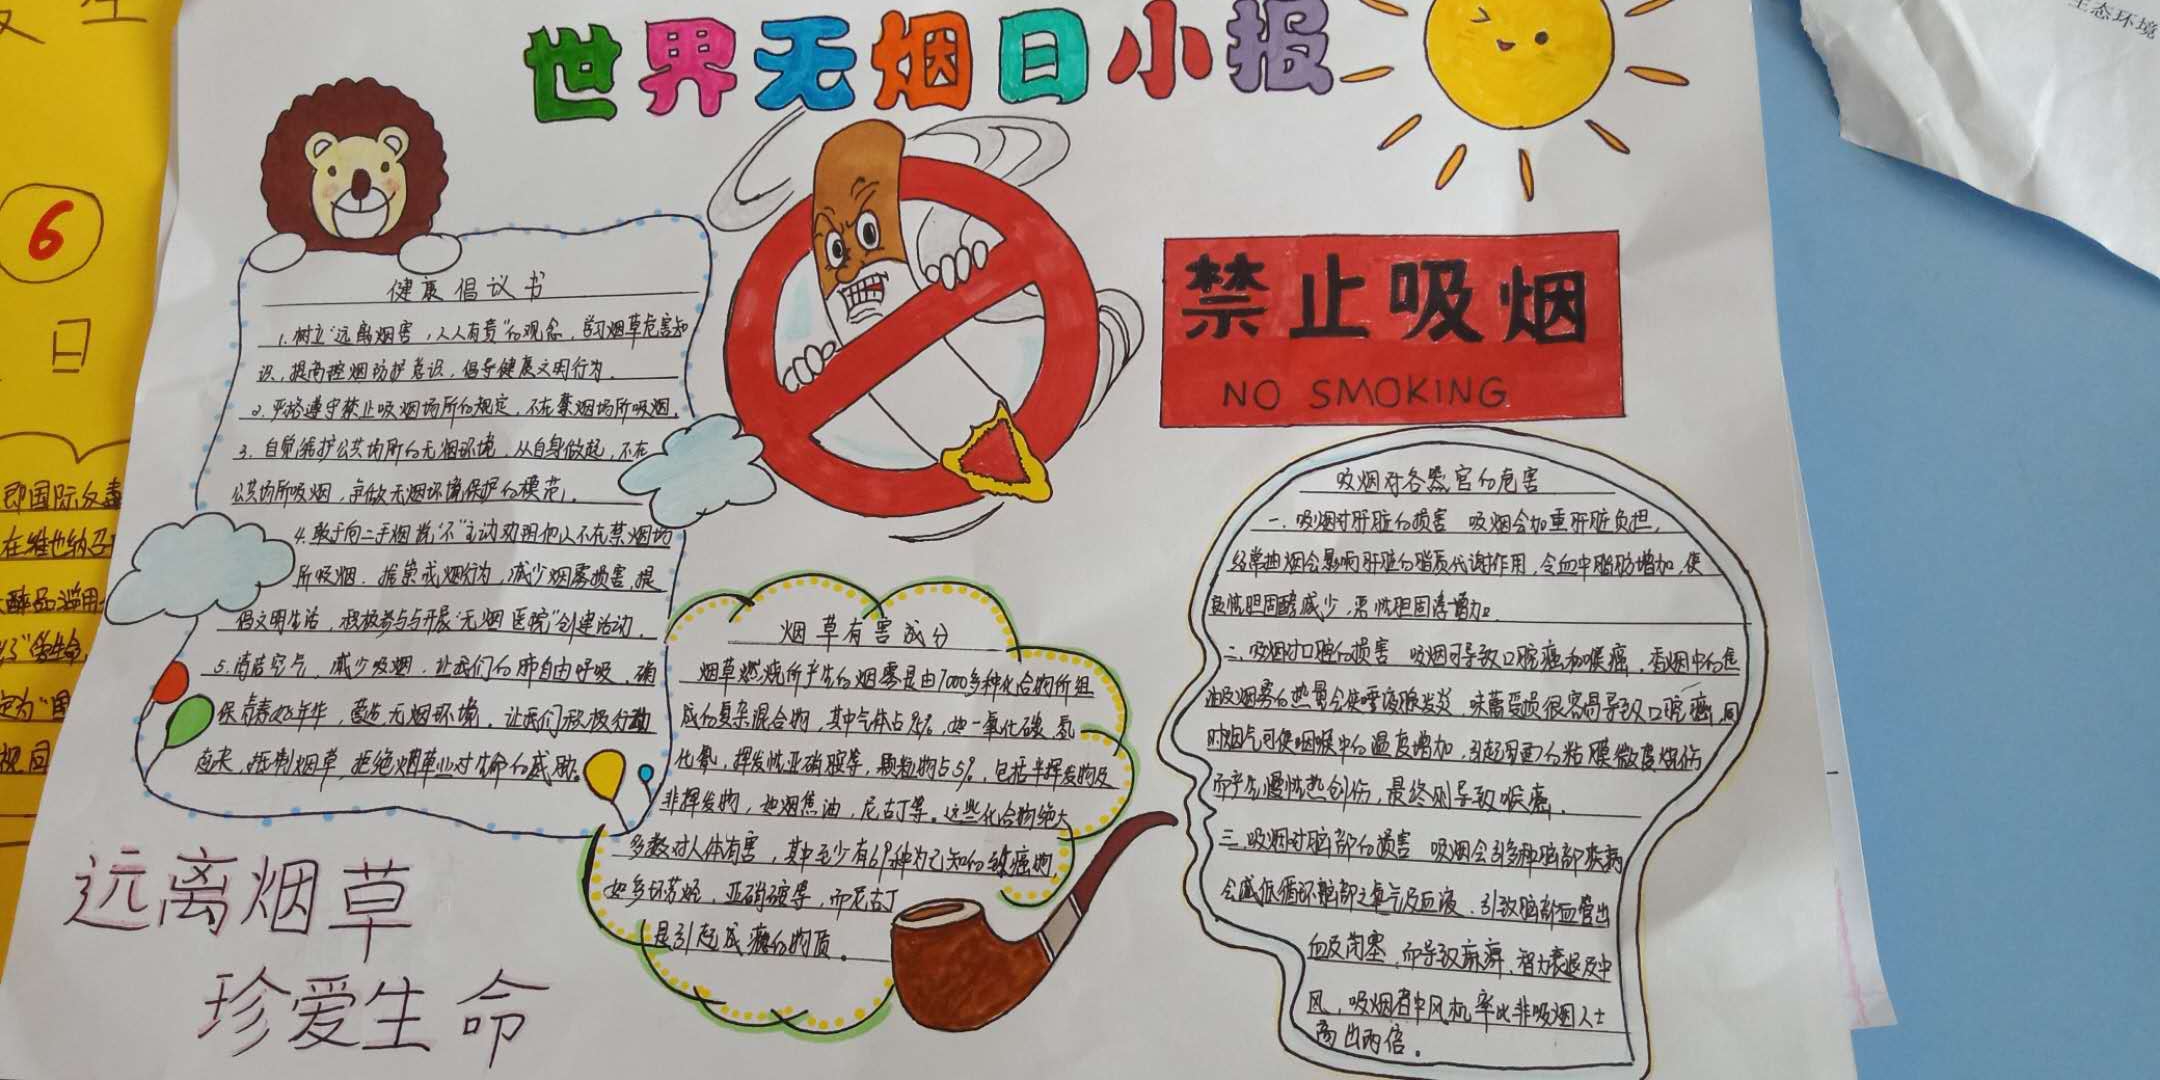 世界无烟日小报
禁止吸烟
NO SMOKING
健康倡议书
1.树立“远离烟害，人人有责”的观念，学习烟草危害知
识，提高控烟防护意识，倡导健康文明行为。
2.严格遵守禁止吸烟场所的规定，不在禁烟场所吸烟。
3.自觉维护公共场所的无烟环境，从自身做起，不在
公共场所吸烟，争做无烟环境保护的模范。
4.敢于向二手烟说“不”主动劝阻他人不在禁烟场
所吸烟，推崇戒烟行为，减少烟雾损害，提
倡文明生活，积极参与与开展“无烟医院”创建活动。
5.清洁空气，减少吸烟，让我们的肺自由呼吸，确
保青春年华，营造无烟环境，让我们积极行动
起来，抵制烟草，拒绝烟草业对生命的威胁。
远离烟草
珍爱生命
烟草有害成分
烟草燃烧所产生的烟雾是由7000多种化合物所组
成的复杂混合物，其中气体占95%，如一氧化碳、氢
化氰，挥发性亚硝胺等，颗粒物占5%，包括半挥发物及
非挥发物，如烟焦油，尼古丁等。这些化合物绝大
多数对人体有害，其中至少有69种为已知的致癌物，
如多环芳烃，亚硝胺等，而尼古丁
是引起成瘾的物质。
吸烟对各器官的危害
一、吸烟对肝脏的损害 吸烟会加重肝脏负担，
经常抽烟会影响肝脏的脂质代谢作用，令血中脂肪增加，使
良性胆固醇减少，恶性胆固醇增加。
二、吸烟对口腔的损害 吸烟可导致口腔癌和喉癌，香烟中的焦
油及烟雾的热量会使唾液腺发炎，味蕾受损很容易导致口腔癌，同
时烟气可使咽喉中的温度增加，引起周围的粘膜微度烧伤
而产生慢性热创伤，最终则导致喉癌。
三、吸烟对脑部的损害 吸烟会引多种脑部疾病
会减低循环脑部之氧气及血液，引致脑部血管出
血及闭塞，而导致麻痹、智力衰退及中
风，吸烟者中风机率比非吸烟人士
高出两倍。
6
日
即国际反毒
在维也纳召
品滥用
定为“国
视同
生态环境